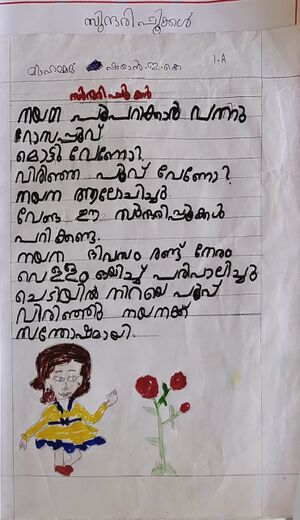 സുന്ദരിപ്പൂക്കൾ
1.A
മുഹമ്മദ് ഷയാൻ.ഇ.കെ
സുന്ദരിപ്പൂക്കൾ
നയന പൂപറിക്കാൻ വന്നു
റോസപ്പൂവ്
മൊട്ട് വേണോ?
വിരിഞ്ഞ പൂവ് വേണോ?
നയന ആലോചിച്ചു
വേണ്ട ഈ സുന്ദരിപ്പൂക്കൾ
പറിക്കണ്ട.
നയന ദിവസം രണ്ട് നേരം
വെള്ളം ഒയിച്ച് പരിപാലിച്ചു
ചെടിയിൽ നിറയെ പൂവ്
വിരിഞ്ഞു നയനക്ക്
സന്തോഷമായി.